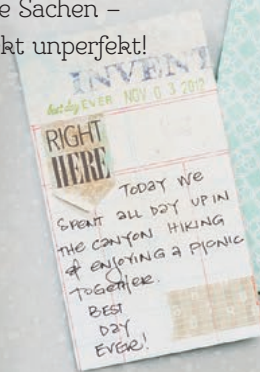 e Sachen –
kt unperfekt!
INVENT
best day EVER NOV 0 3 2012
RIGHT
HERE
TODAY WE
SPENT ALL DAY UP IN
THE CANYON HIKING
& ENJOYING A PICNIC
TOGETHER.
BEST
DAY
EVER!